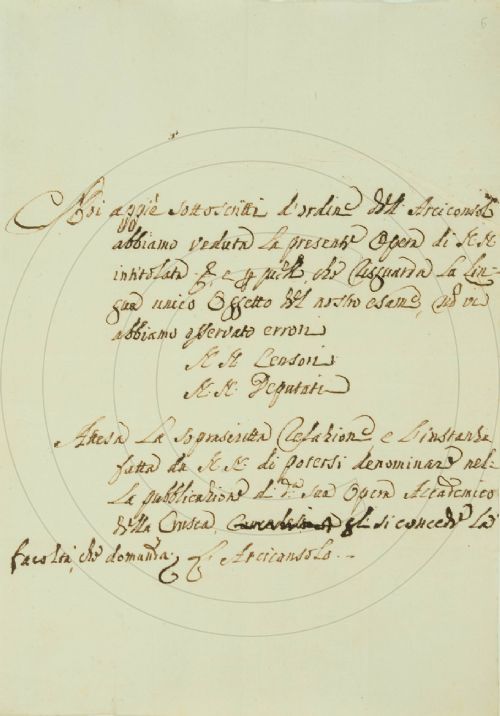 6
Noi appiè sottoscritti d'ordine dell' Arciconsolo
abbiamo veduta la presente Opera di N. N.
intitolata &c. e p quello, che risguarda la Lin-
gua unico Oggetto del nostro esame, nō vi
abbiamo osservato errori
N. N. Censori
N. N. Deputati
Attesa la soprascritta Relazione e l'instanza
fatta da N. N. di potersi denominare nel-
la pubblicazione d.ᵃ sua Opera Accademico
della Crusca, gl si concede la
facoltà, che domanda. L'Arciconsolo.